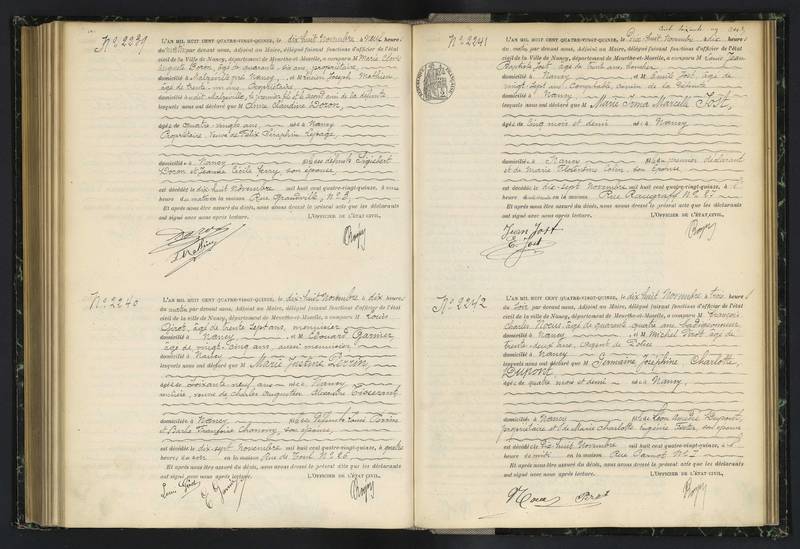 N° 2239
L'AN MIL HUIT CENT QUATRE-VINGT-QUINZE, le dix-huit Novembre à neuf heures
du matin par devant nous, Adjoint au Maire, délégué faisant fonctions d'officier de l'état
civil de la Ville de Nancy, département de Meurthe-et-Moselle, a comparu M Marie
domicilié à Malzéville près Nancy, et M Joseph Mathieu,
âgé de trente un ans, Propriétaire
domicilié audit Malzéville, le premier fils et le second ami de la défunte
lesquels nous ont déclaré que M Anne Claudine
âgée de quatre-vingts ans, née à Nancy
Propriétaire, veuve de Félix Séraphin Lepage,
domiciliée à Nancy fille de défunts
et Jeanne Cécile Ferry, son épouse,
est décédée le dix-huit Novembre mil huit cent quatre-vingt-quinze, à une
heure du matin en la maison Rue Grandville, N° 2,
Et après nous être assuré du décès, nous avons dressé le présent acte que les déclarants
ont signé avec nous après lecture. L'OFFICIER DE L'ÉTAT CIVIL,
N° 2240
L'AN MIL HUIT CENT QUATRE-VINGT-QUINZE, le dix-huit Novembre à dix heures
du matin par devant nous, Adjoint au Maire, délégué faisant fonctions d'officier de l'état
civil de la Ville de Nancy, département de Meurthe-et-Moselle, a comparu M Louis
âgé de trente sept ans, menuisier
domicilié à Nancy et M Edouard Garnier
âgé de vingt cinq ans, aussi menuisier
domicilié à Nancy
lesquels nous ont déclaré que M Marie Justine
âgée de soixante neuf ans née à Nancy
veuve de Charles Augustin Alexandre
domiciliée à Nancy fille de défunts Louis
et Barbe Françoise son épouse,
est décédée le dix-sept Novembre mil huit cent quatre-vingt-quinze, à quatre
heures du soir en la maison Rue de Toul N° 26
Et après nous être assuré du décès, nous avons dressé le présent acte que les déclarants
ont signé avec nous après lecture. L'OFFICIER DE L'ÉTAT CIVIL,
N° 2241
L'AN MIL HUIT CENT QUATRE-VINGT-QUINZE, le Dix-huit Novembre à dix heures
du matin, par devant nous, Adjoint au Maire, délégué faisant fonctions d'officier de l'état
civil de la Ville de Nancy, département de Meurthe-et-Moselle, a comparu M Louis Jean
Baptiste Jost, âgé de trente ans,
domicilié à Nancy et M Emile Jost, âgé de
vingt sept ans, Comptable, cousin de la défunte
domicilié à Nancy
lesquels nous ont déclaré que M Marie Irma Marcelle Jost,
âgée de cinq mois et demi née à Nancy
domiciliée à Nancy fille du premier déclarant
et de Marie son épouse
est décédée le dix-sept Novembre mil huit cent quatre-vingt-quinze, à
heures en la maison Rue Raugraff N° 27
Et après nous être assuré du décès, nous avons dressé le présent acte que les déclarants
ont signé avec nous après lecture. L'OFFICIER DE L'ÉTAT CIVIL,
Jean Jost
E. Jost
N° 2242
L'AN MIL HUIT CENT QUATRE-VINGT-QUINZE, le dix-huit Novembre à trois heures
du soir par devant nous, Adjoint au Maire, délégué faisant fonctions d'officier de l'état
civil de la Ville de Nancy, département de Meurthe-et-Moselle, a comparu M François
Charles âgé de quarante quatre ans
domicilié à Nancy et M Michel âgé de
trente deux ans, Agent de Police
domicilié à Nancy
lesquels nous ont déclaré que M Germaine Joséphine Charlotte
Dupont,
âgée de quatre mois et demi née à Nancy,
domiciliée à Nancy fille de Léon Amédée Dupont,
propriétaire et de Marie Charlotte Eugénie son épouse
est décédée le dix-huit Novembre mil huit cent quatre-vingt-quinze, à
heure en la maison Rue Carnot N° 7
Et après nous être assuré du décès, nous avons dressé le présent acte que les déclarants
ont signé avec nous après lecture. L'OFFICIER DE L'ÉTAT CIVIL,